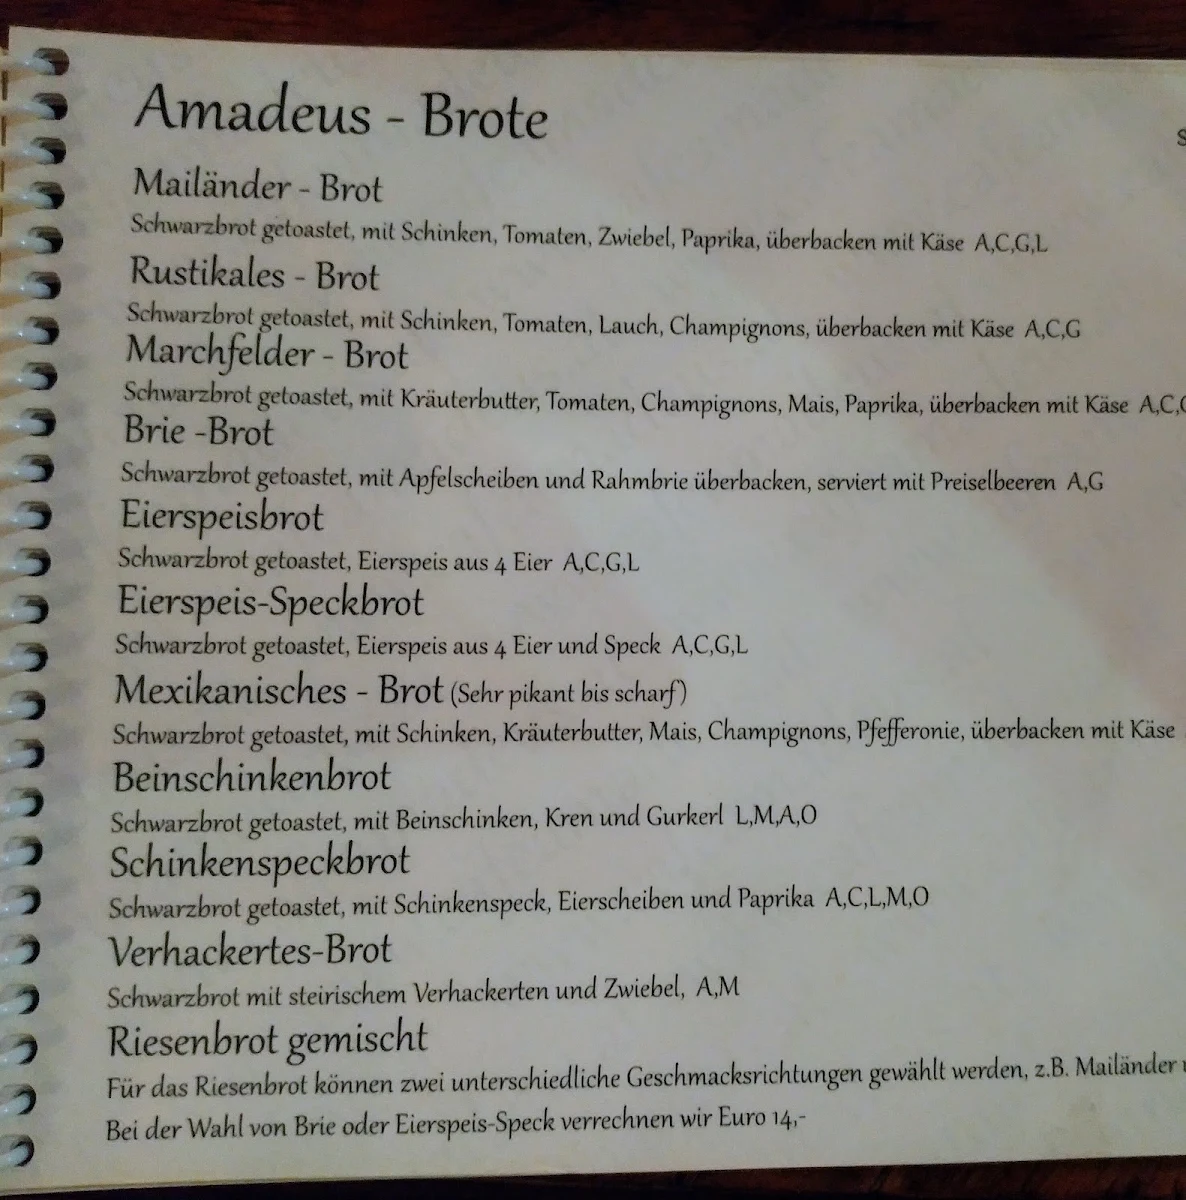 Amadeus - Brote
S
Mailänder - Brot
Schwarzbrot getoastet, mit Schinken, Tomaten, Zwiebel, Paprika, überbacken mit Käse A,C,G,L
Rustikales - Brot
Schwarzbrot getoastet, mit Schinken, Tomaten, Lauch, Champignons, überbacken mit Käse A,C,G
Marchfelder - Brot
Schwarzbrot getoastet, mit Kräuterbutter, Tomaten, Champignons, Mais, Paprika, überbacken mit Käse A,C,G
Brie -Brot
Schwarzbrot getoastet, mit Apfelscheiben und Rahmbrie überbacken, serviert mit Preiselbeeren A,G
Eierspeisbrot
Schwarzbrot getoastet, Eierspeis aus 4 Eier A,C,G,L
Eierspeis-Speckbrot
Schwarzbrot getoastet, Eierspeis aus 4 Eier und Speck A,C,G,L
Mexikanisches - Brot (Sehr pikant bis scharf)
Schwarzbrot getoastet, mit Schinken, Kräuterbutter, Mais, Champignons, Pfefferonie, überbacken mit Käse
Beinschinkenbrot
Schwarzbrot getoastet, mit Beinschinken, Kren und Gurkerl L,M,A,O
Schinkenspeckbrot
Schwarzbrot getoastet, mit Schinkenspeck, Eierscheiben und Paprika A,C,L,M,O
Verhackertes-Brot
Schwarzbrot mit steirischem Verhackerten und Zwiebel, A,M
Riesenbrot gemischt
Für das Riesenbrot können zwei unterschiedliche Geschmacksrichtungen gewählt werden, z.B. Mailänder
Bei der Wahl von Brie oder Eierspeis-Speck verrechnen wir Euro 14,-